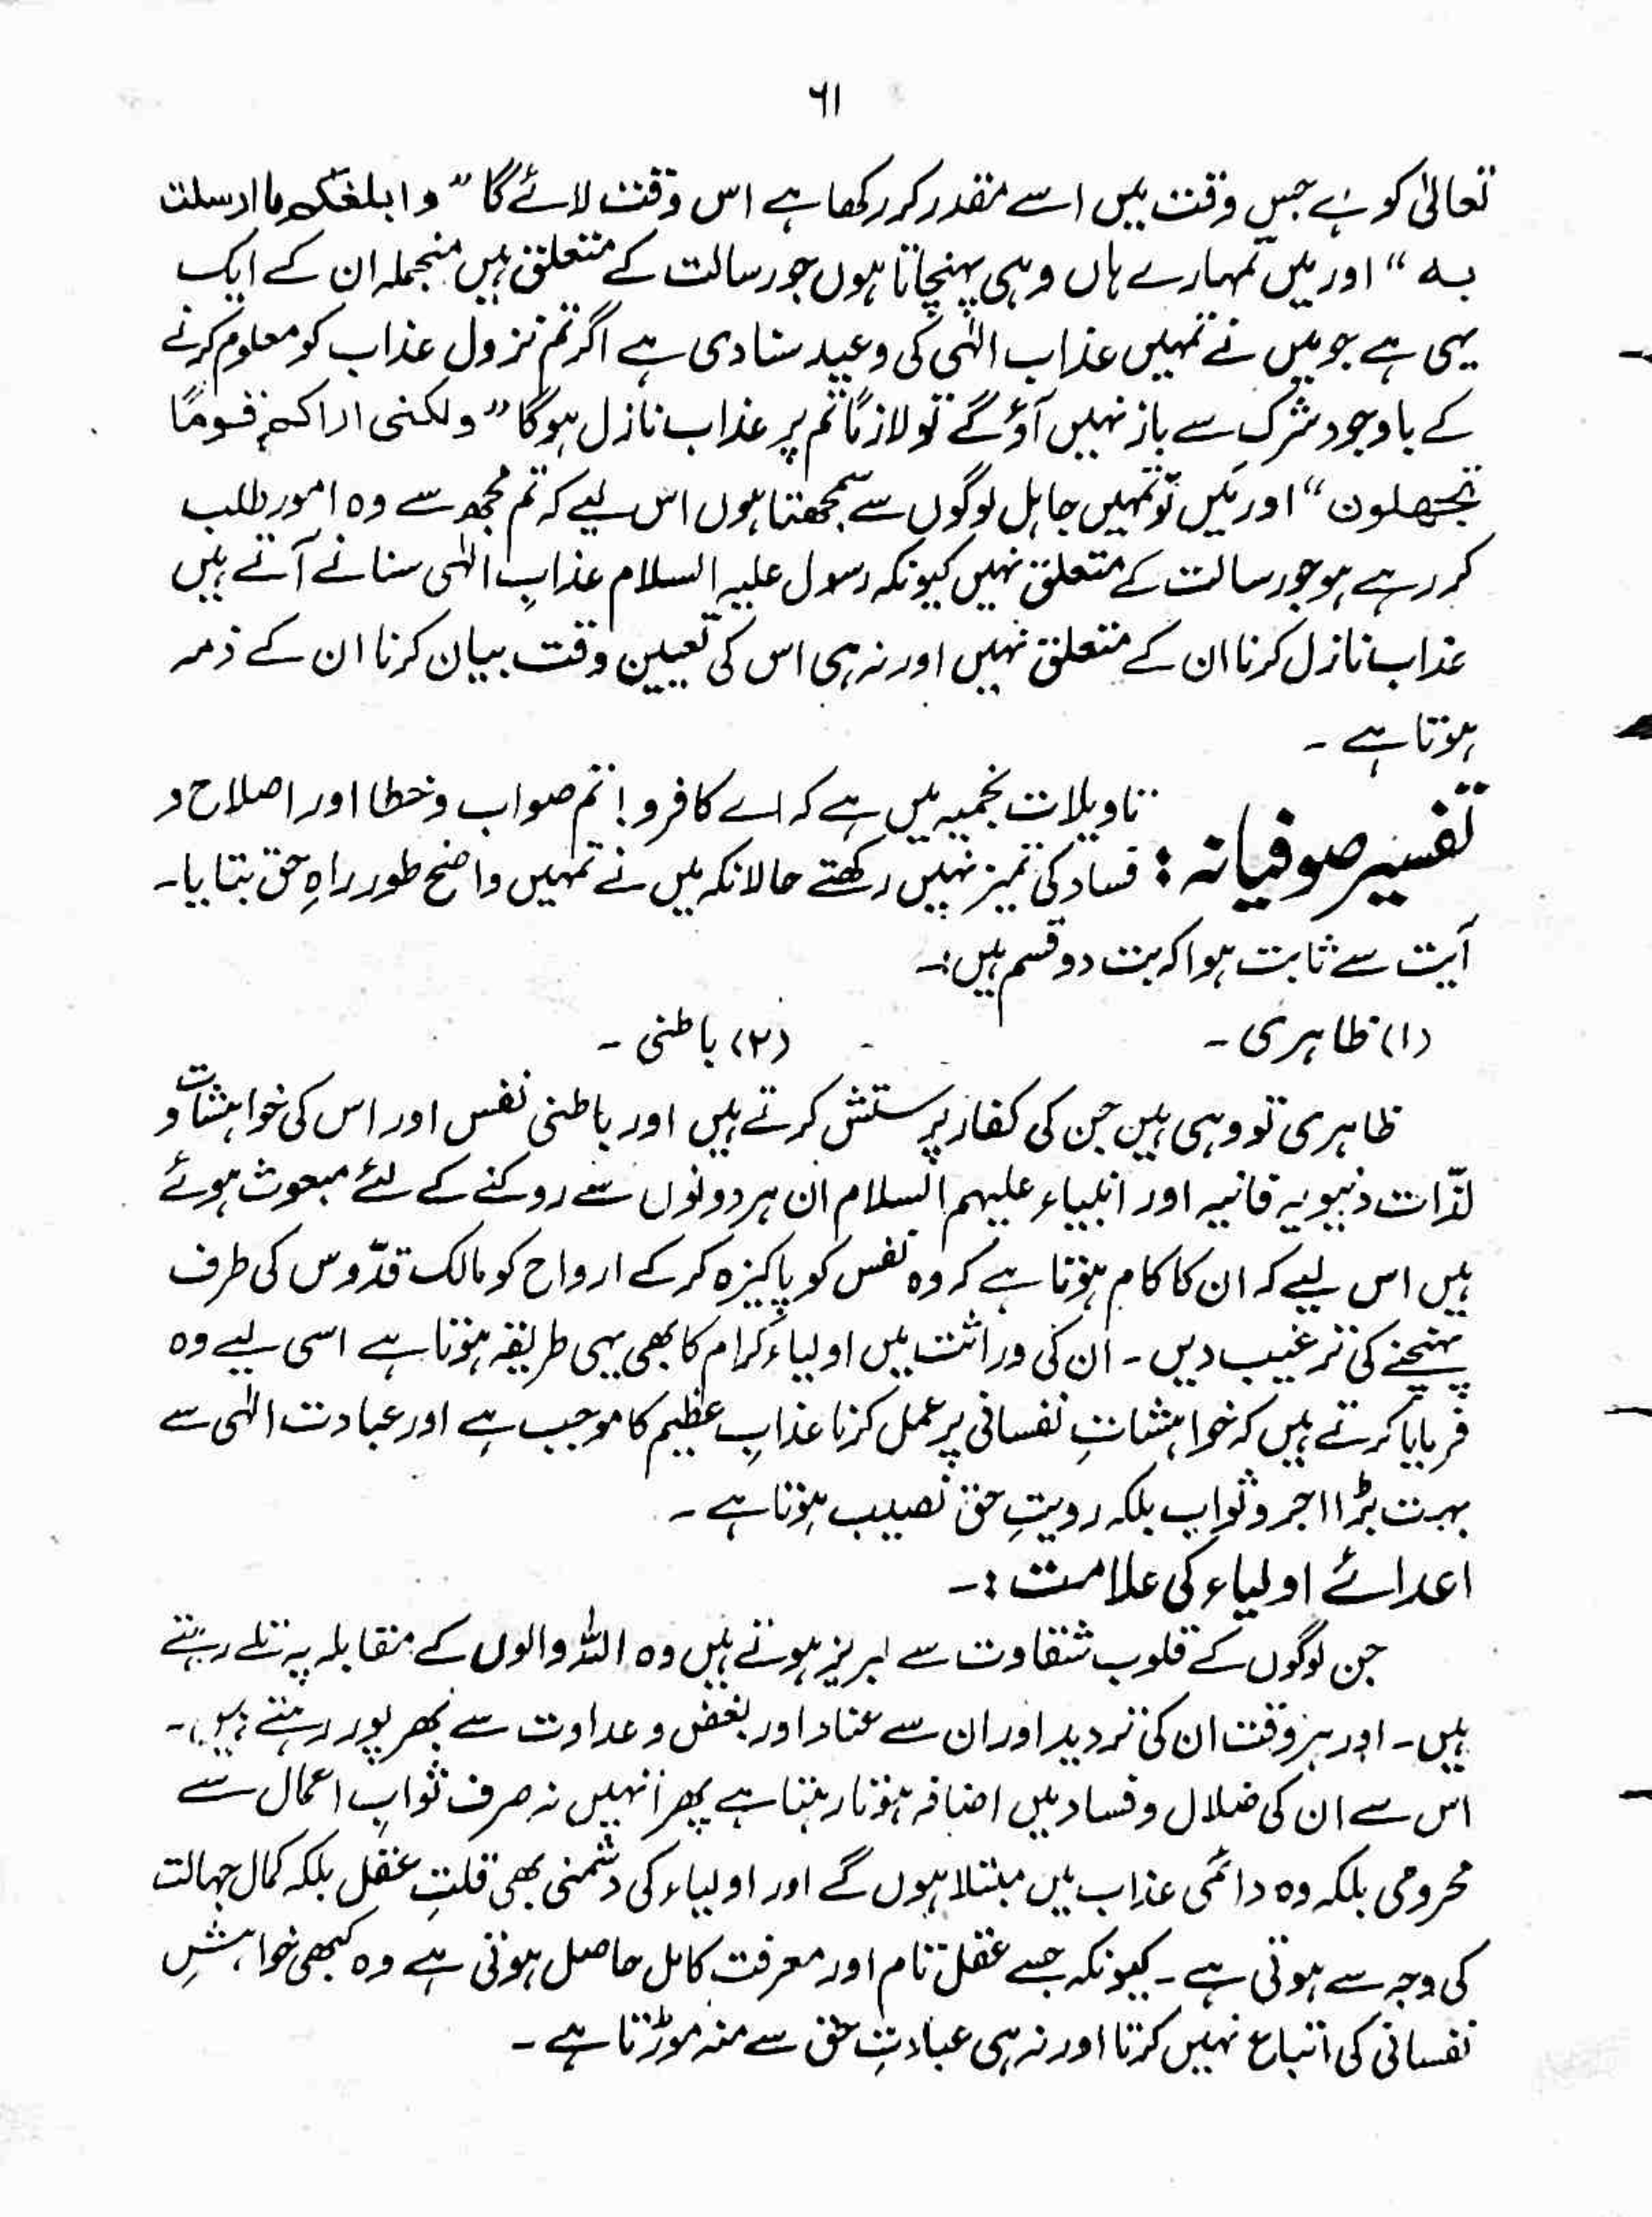 ٦١
تعالیٰ کو ہے جس وقت میں اسے مقدر کر رکھا ہے اس وقت لائے گا ”وابلغکم ما ارسلت
بہ“ اور میں تمہارے ہاں وہی پہنچاتا ہوں جو رسالت کے متعلق ہیں منجملہ ان کے ایک
یہی ہے جو میں نے تمہیں عذاب الٰہی کی وعید سنا دی ہے اگر تم نزول عذاب کو معلوم کرنے
کے باوجود شرک سے باز نہیں آؤ گے تو لازمًا تم پر عذاب نازل ہوگا ”ولکنی اراکم قومًا
تجھلون“ اور میں تو تمہیں جاہل لوگوں سے سمجھتا ہوں اس لیے کہ تم مجھ سے وہ امور طلب
کر رہے ہو جو رسالت کے متعلق نہیں کیونکہ رسول علیہ السلام عذابِ الٰہی سنانے آتے ہیں
عذاب نازل کرنا ان کے متعلق نہیں اور نہ ہی اس کی تعیین وقت بیان کرنا ان کے ذمہ
ہوتا ہے ۔
تفسیر صوفیانہ : تاویلات نجمیہ میں ہے کہ اے کافرو! تم صواب وخطا اور اصلاح و
فساد کی تمیز نہیں رکھتے حالانکہ میں نے تمہیں واضح طور راہِ حق بتایا۔
آیت سے ثابت ہوا کہ بت دو قسم ہیں :۔
(۱) ظاہری ۔ (۲) باطنی ۔
ظاہری تو وہی ہیں جن کی کفار پرستش کرتے ہیں اور باطنی نفس اور اس کی خواہشات و
لذّات دنیویہ فانیہ اور انبیاء علیہم السلام ان ہر دونوں سے روکنے کے لئے مبعوث ہوئے
ہیں اس لیے کہ ان کا کام ہوتا ہے کہ وہ نفس کو پاکیزہ کرکے ارواح کو مالک قدّوس کی طرف
پہنچنے کی ترغیب دیں ۔ ان کی وراثت میں اولیاء کرام کا بھی یہی طریقہ ہوتا ہے اسی لیے وہ
فرمایا کرتے ہیں کہ خواہشاتِ نفسانی پر عمل کرنا عذابِ عظیم کا موجب ہے اور عبادت الٰہی سے
بہت بڑا اجر وثواب بلکہ رویتِ حق نصیب ہوتا ہے ۔
اعدائے اولیاء کی علامت :۔
جن لوگوں کے قلوب شقاوت سے لبریز ہوتے ہیں وہ اللہ والوں کے مقابلہ پہ تلے رہتے
ہیں ۔ اور ہر وقت ان کی تردید اور ان سے عناد اور بغض وعداوت سے بھرپور رہتے ہیں ۔
اس سے ان کی ضلال وفساد میں اضافہ ہوتا رہتا ہے پھر انہیں نہ صرف ثوابِ اعمال سے
محرومی بلکہ وہ دائمی عذاب میں مبتلا ہوں گے اور اولیاء کی دشمنی بھی قلتِ عقل بلکہ کمال جہالت
کی وجہ سے ہوتی ہے ۔ کیونکہ جسے عقل تام اور معرفت کامل حاصل ہوتی ہے وہ کبھی خواہشِ
نفسانی کی اتباع نہیں کرتا اور نہ ہی عبادتِ حق سے منہ موڑتا ہے ۔